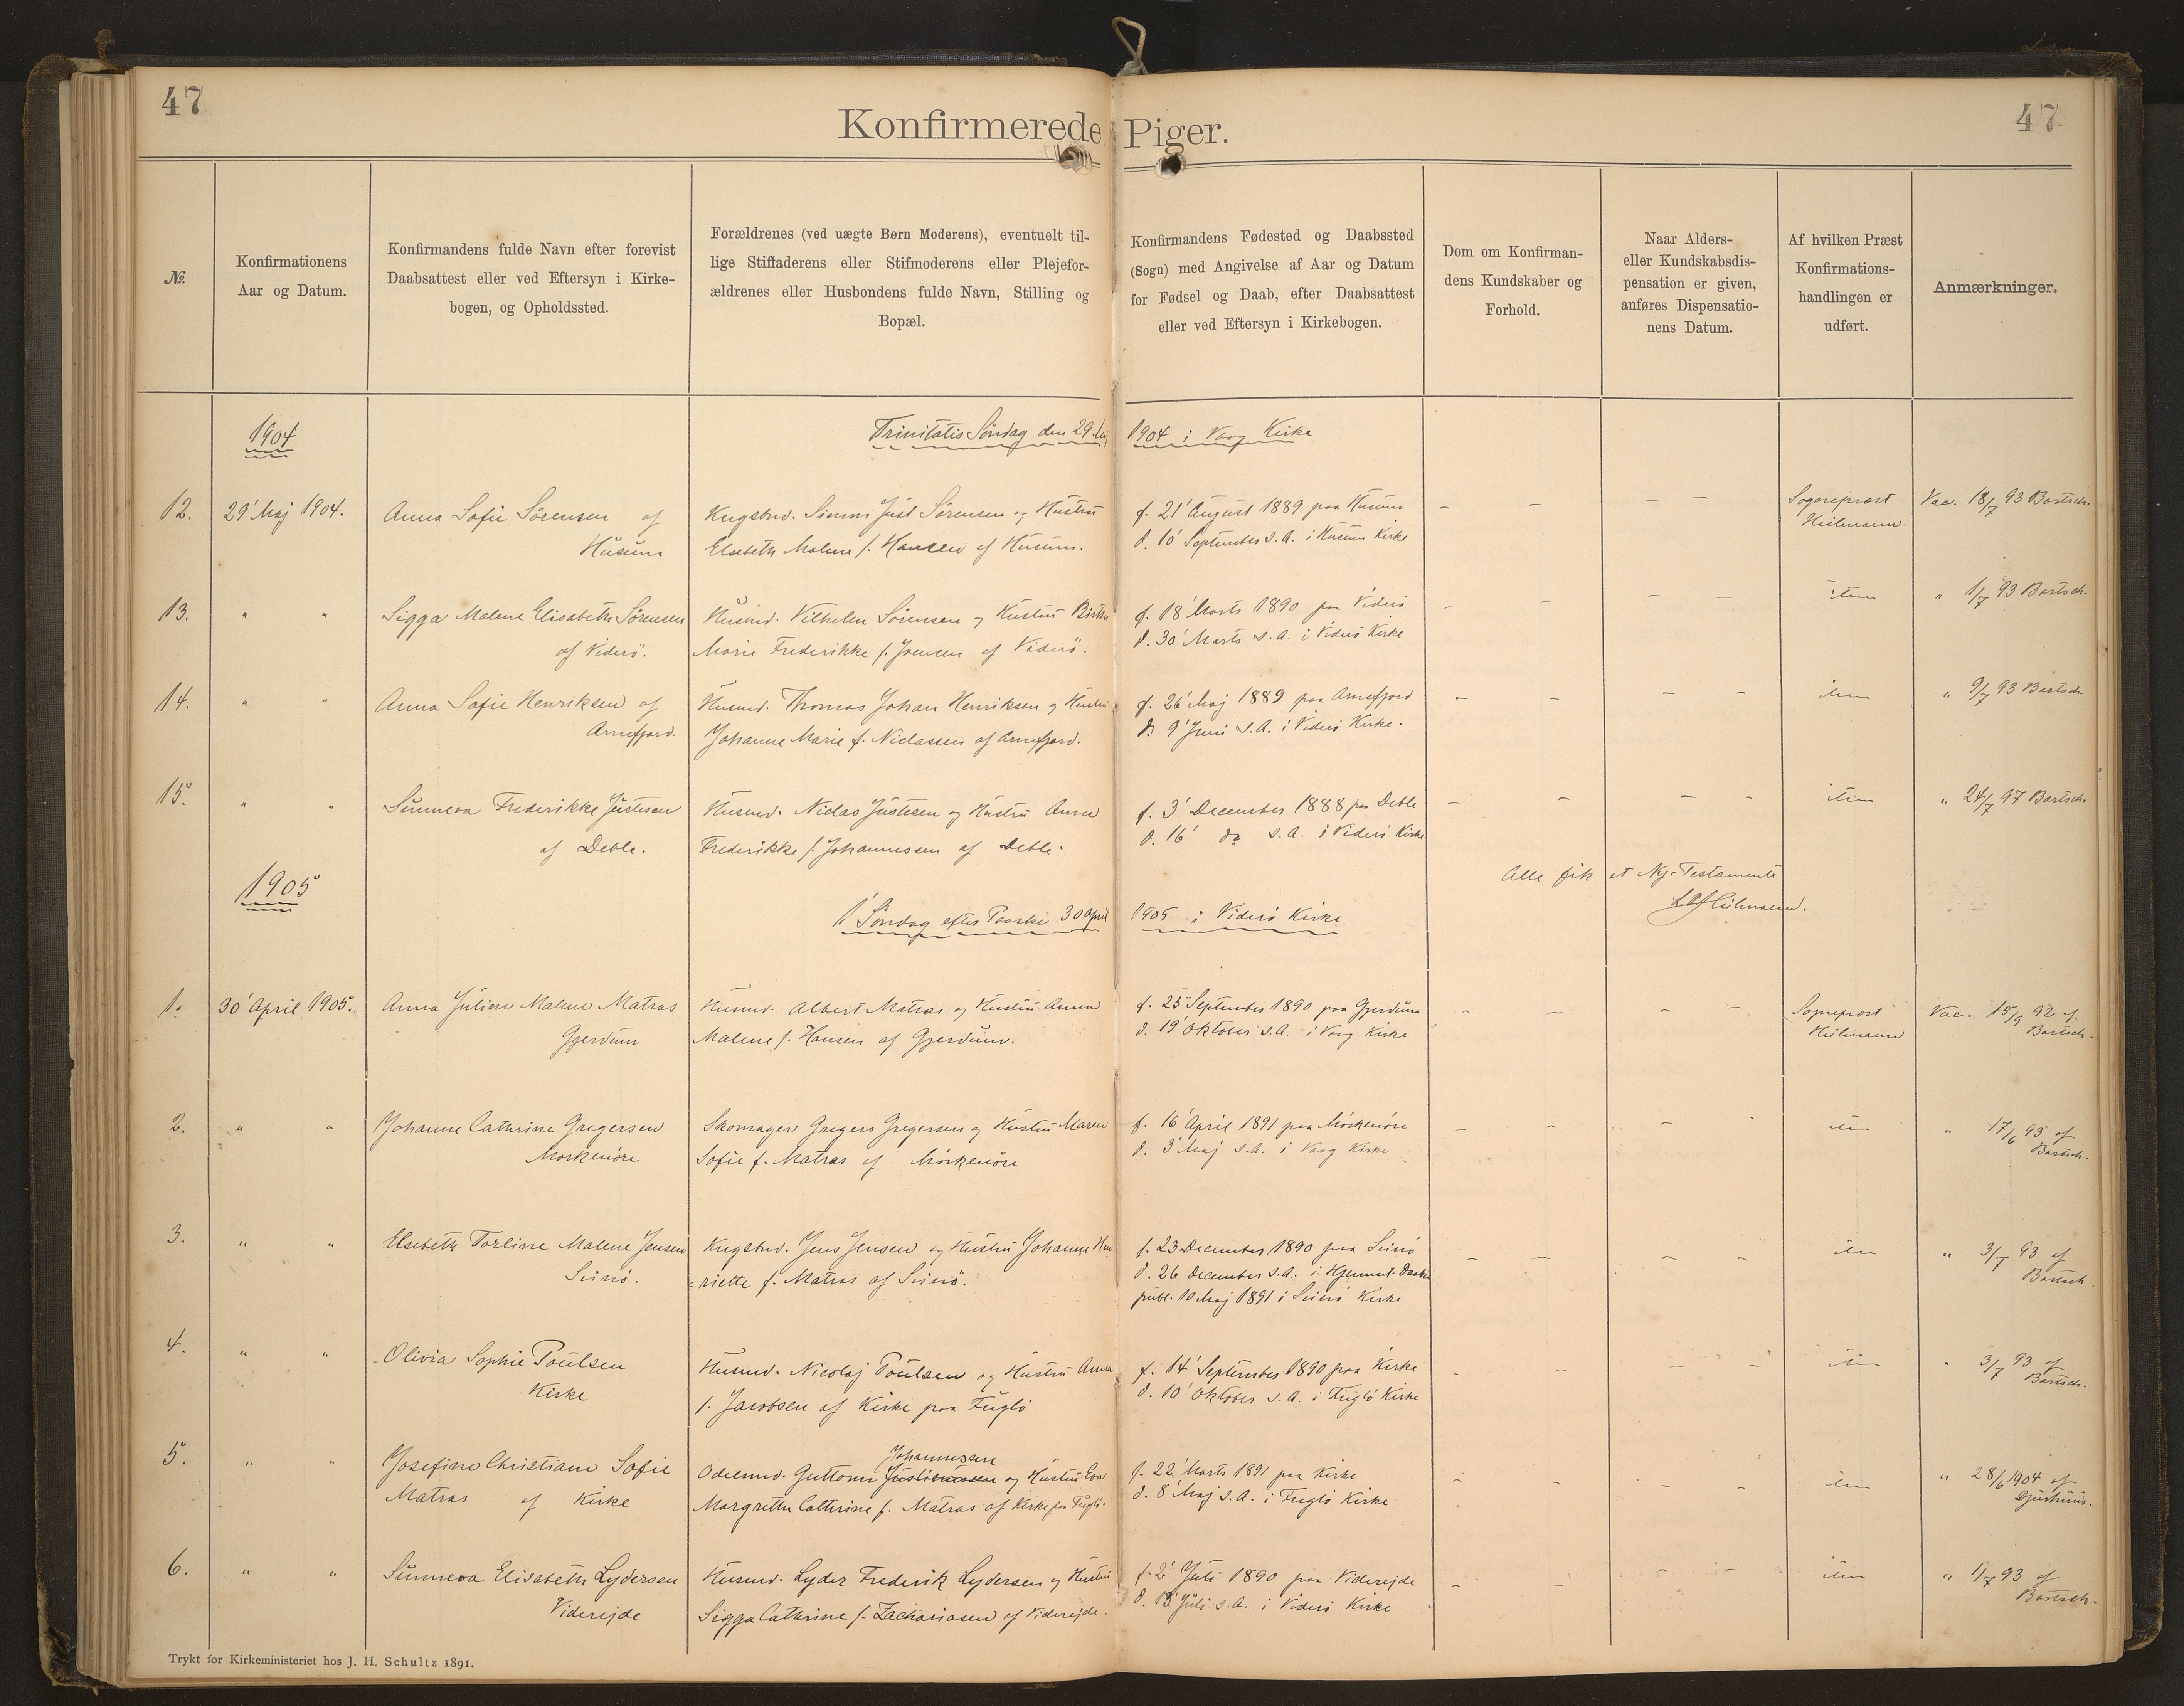 47
47
Konfirmerede Piger.
№
Konfirmationens
Aar og Datum.
Konfirmandens fulde Navn efter forevist
Daabsattest eller ved Eftersyn i Kirke-
bogen, og Opholdssted.
Forældrenes (ved uægte Børn Moderens), eventuelt til-
lige Stiffaderens eller Stifmoderens eller Plejefor-
ældrenes eller Husbondens fulde Navn, Stilling og
Bopæl.
Konfirmandens Fødested og Daabssted
(Sogn) med Angivelse af Aar og Datum
for Fødsel og Daab, efter Daabsattest
eller ved Eftersyn i Kirkebogen.
Dom om Konfirman-
dens Kundskaber og
Forhold.
Naar Alders-
eller Kundskabsdis-
pensation er given,
anføres Dispensatio-
nens Datum.
Af hvilken Præst
Konfirmations-
handlingen er
udført.
Anmærkninger.
1904
Trinitatis Søndag den 29 Maj 1904 i Vaag Kirke
12.
29' Maj 1904.
Anna Sofie Sörensen af
Husum
Kngsbnd. Simun Just Sörensen og Hustru
Elsebeth Malene f. Hansen af Husum.
f. 21' August 1889 paa Husum
d. 10' September s.A. i Husum Kirke
- -
- -
Sognepræst
Heilmann.
Vac. 18/7 93 Bartsch.
13.
" "
Sigga Malene Elisabeth Sörensen
af Viderö.
Husmd. Vilhelm Sörensen og Hustru
Marie Frederikke f. Joensen af Viderö.
f. 18' Marts 1890 paa Viderö
d. 30' Marts s.A. i Viderö Kirke
- -
- -
item
" 1/7 93 Bartsch.
14.
" "
Anna Sofie Henriksen af
Arnefjord.
Husmd. Thomas Johan Henriksen og Hustru
Johanne Marie f. Niclassen af Arnefjord.
f. 26' Maj 1889 paa Arnefjord
d. 9' Juni s.A. i Viderö Kirke.
- -
- -
item
" 9/7 93 Bartsch.
15.
" "
Sunneva Frederikke Justesen
af Deble.
Husmd. Niclas Justesen og Hustru Anna
Frederikke f. Johannessen af Deble.
f. 3' December 1888 paa Deble
d. 16' do s.A. i Viderö Kirke
- -
- -
item
" 24/7 97 Bartsch.
Alle fik et Ny-Testamente
Heilmann.
1905
1' Søndag efter Paaske 30 April 1905 i Viderö Kirke
1.
30' April 1905.
Anna Juline Malene Matras
Gjerdum
Husmd. Albert Matras og Hustru Anna
Malene f. Hansen af Gjerdum.
f. 25 September 1890 paa Gjerdum
d. 19' Oktober s.A. i Vaag Kirke
- -
- -
Sognepræst
Heilmann
Vac. 15/9 92 af
Bartsch.
2.
" "
Johanne Cathrine Gregersen
Morkenöre
Skomager Gregers Gregersen og Hustru Maren
Sofie f. Matras af Mörkenöre
f. 16' April 1891 paa Mörkenöre
d. 3' Maj s.A. i Vaag Kirke
- -
- -
item
" 17/6 93 af
Bartsch.
3.
" "
Elsebeth Torline Malene Jensen
Svinö.
Kngsbnd. Jens Jensen og Hustru Johanne Hen-
riette f. Matras af Svinö.
f. 23 December 1890 paa Svinö
d. 26 December s.A. i Hjemmet. Daaben
publ. 10 Maj 1891 i Svinö Kirke
- -
- -
item
" 3/7 93 af
Bartsch.
4.
" "
Olivia Sophie Poulsen
Kirke
Husmd. Nicolaj Poulsen og Hustru Anna
f. Jacobsen af Kirke paa Fuglö
f. 14' September 1890 paa Kirke
d. 10' Oktober s.A. i Fuglö Kirke
- -
- -
item
" 3/7 93 af
Bartsch.
5.
" "
Josefine Christiane Sofie
Matras af Kirke
Johannessen
Odelsmd. Guttorm og Hustru Eva
Margrethe Cathrine f. Matras af Kirke paa Fuglö.
f. 22' Marts 1891 paa Kirke
d. 8' Maj s.A. i Fuglö Kirke
- -
- -
item
" 28/6 1904 af
6.
" "
Sunneva Elisabeth Lydersen
Viderejde
Husmd. Lyder Frederik Lydersen og Hustru
Sigga Cathrine f. Zachariasen af Viderejde.
f. 2' Juli 1890 paa Viderejde
d. 13' Juli s.A. i Viderö Kirke
- -
- -
item
" 1/7 93 af
Bartsch.
Trykt for Kirkeministeriet hos J. H. Schultz 1891.